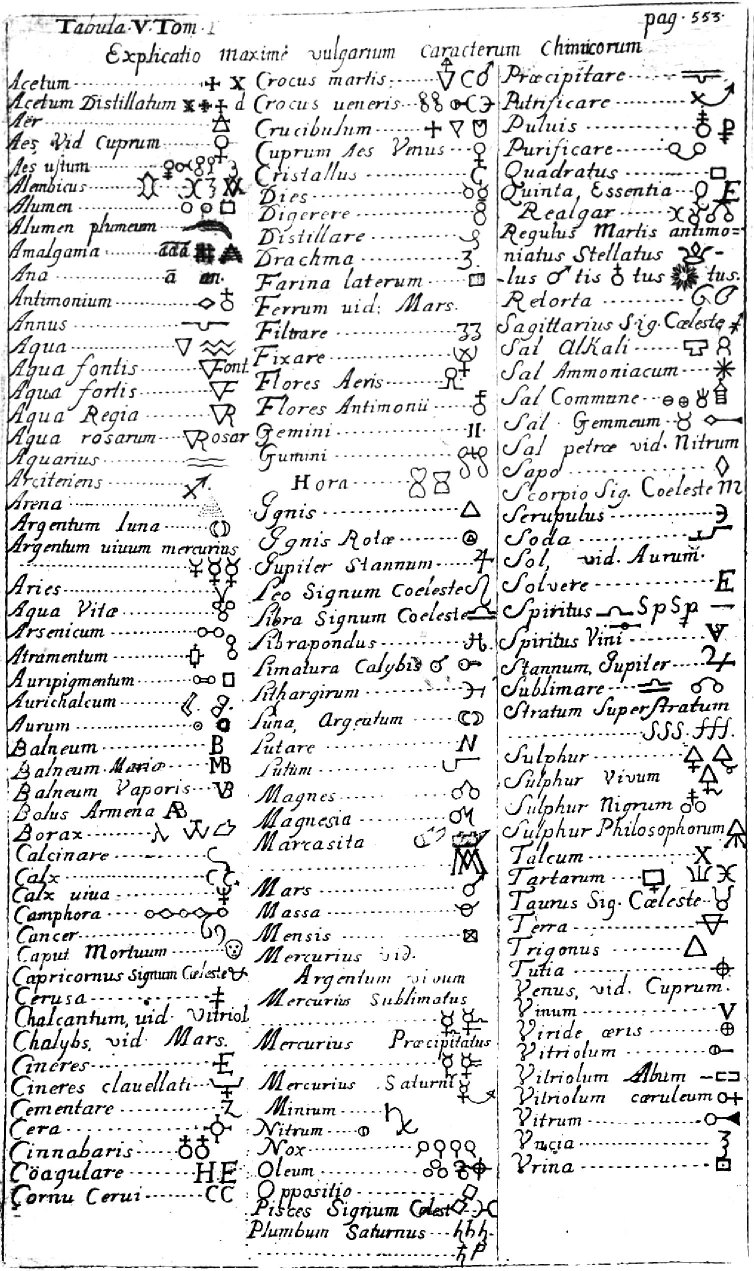 Tabula·V·Tom·I
pag·553·
Explicatio maximè vulgarium Caracterum Chimicorum
Acetum
Acetum Distillatum
Aër
Aes Vid Cuprum
Aes ustum
Alembicus
Alumen
Alumen plumeum
Amalgama
Ana
Antimonium
Annus
Aqua
Aqua fontis Font
Aqua fortis F
Aqua Regia R
Aqua rosarum Rosar
Aquarius
Arciteriens
Arena
Argentum luna
Argentum uiuum mercurius
Aries
Aqua Vitæ
Arsenicum
Atramentum
Auripigmentum
Aurichalcum
Aurum
Balneum B
Balneum Mariæ MB
Balneum Vaporis VB
Bolus Armena AB
Borax
Calcinare
Calx
Calx uiua
Camphora
Cancer
Caput Mortuum
Capricornus Signum Cæleste
Cerusa
Chalcantum, uid Vitriol
Chalybs, vid Mars.
Cineres E
Cineres clauellati
Cementare
Cera
Cinnabaris
Coagulare HE
Cornu Cerui CC
Crocus martis
Crocus ueneris
Crucibulum
Cuprum Aes Venus
Cristallus
Dies
Digerere
Distillare
Drachma
Farina laterum
Ferrum uid: Mars.
Filtrare
Fixare
Flores Aeris
Flores Antimonii
Gemini II
Gumini
Hora
Ignis
Ignis Rotæ
Jupiter Stannum
Leo Signum Coeleste
Libra Signum Coeleste
Librapondus
Limatura Calybis
Lithargirum
Luna, Argentum
Lutare N
Lutum
Magnes
Magnesia
Marcasita
Mars
Massa
Mensis
Mercurius vid.
Argentum vivum
Mercurius Sublimatus
Mercurius Præcipitatus
Mercurius Saturni
Minium
Nitrum
Nox
Oleum
Oppositio
Pisces Signum Celest
Plumbum Saturnus
Præcipitare
Putrificare
Puluis
Purificare
Quadratus
Quinta Essentia E
Realgar
Regulus Martis antimo=
niatus Stellatus
-lus ♂ tis ♁ tus tus.
Retorta
Sagittarius Sig. Cæleste
Sal Alkali
Sal Ammoniacum
Sal Commune
Sal Gemmeum
Sal petræ vid. Nitrum
Sapo
Scorpio Sig. Coeleste
Scrupulus
Soda
Sol, vid. Aurum.
Solvere E
Spiritus Sp Sp
Spiritus Vini
Stannum, Jupiter
Sublimare
Stratum SuperStratum
SSS. fff.
Sulphur
Sulphur Vivum
Sulphur Nigrum
Sulphur Philosophorum
Talcum X
Tartarum
Taurus Sig. Cæleste
Terra
Trigonus
Tutia
Venus, vid. Cuprum.
Vinum V
Viride æris
Vitriolum
Vitriolum Album
Vitriolum cæruleum
Vitrum
Vncia
Vrina